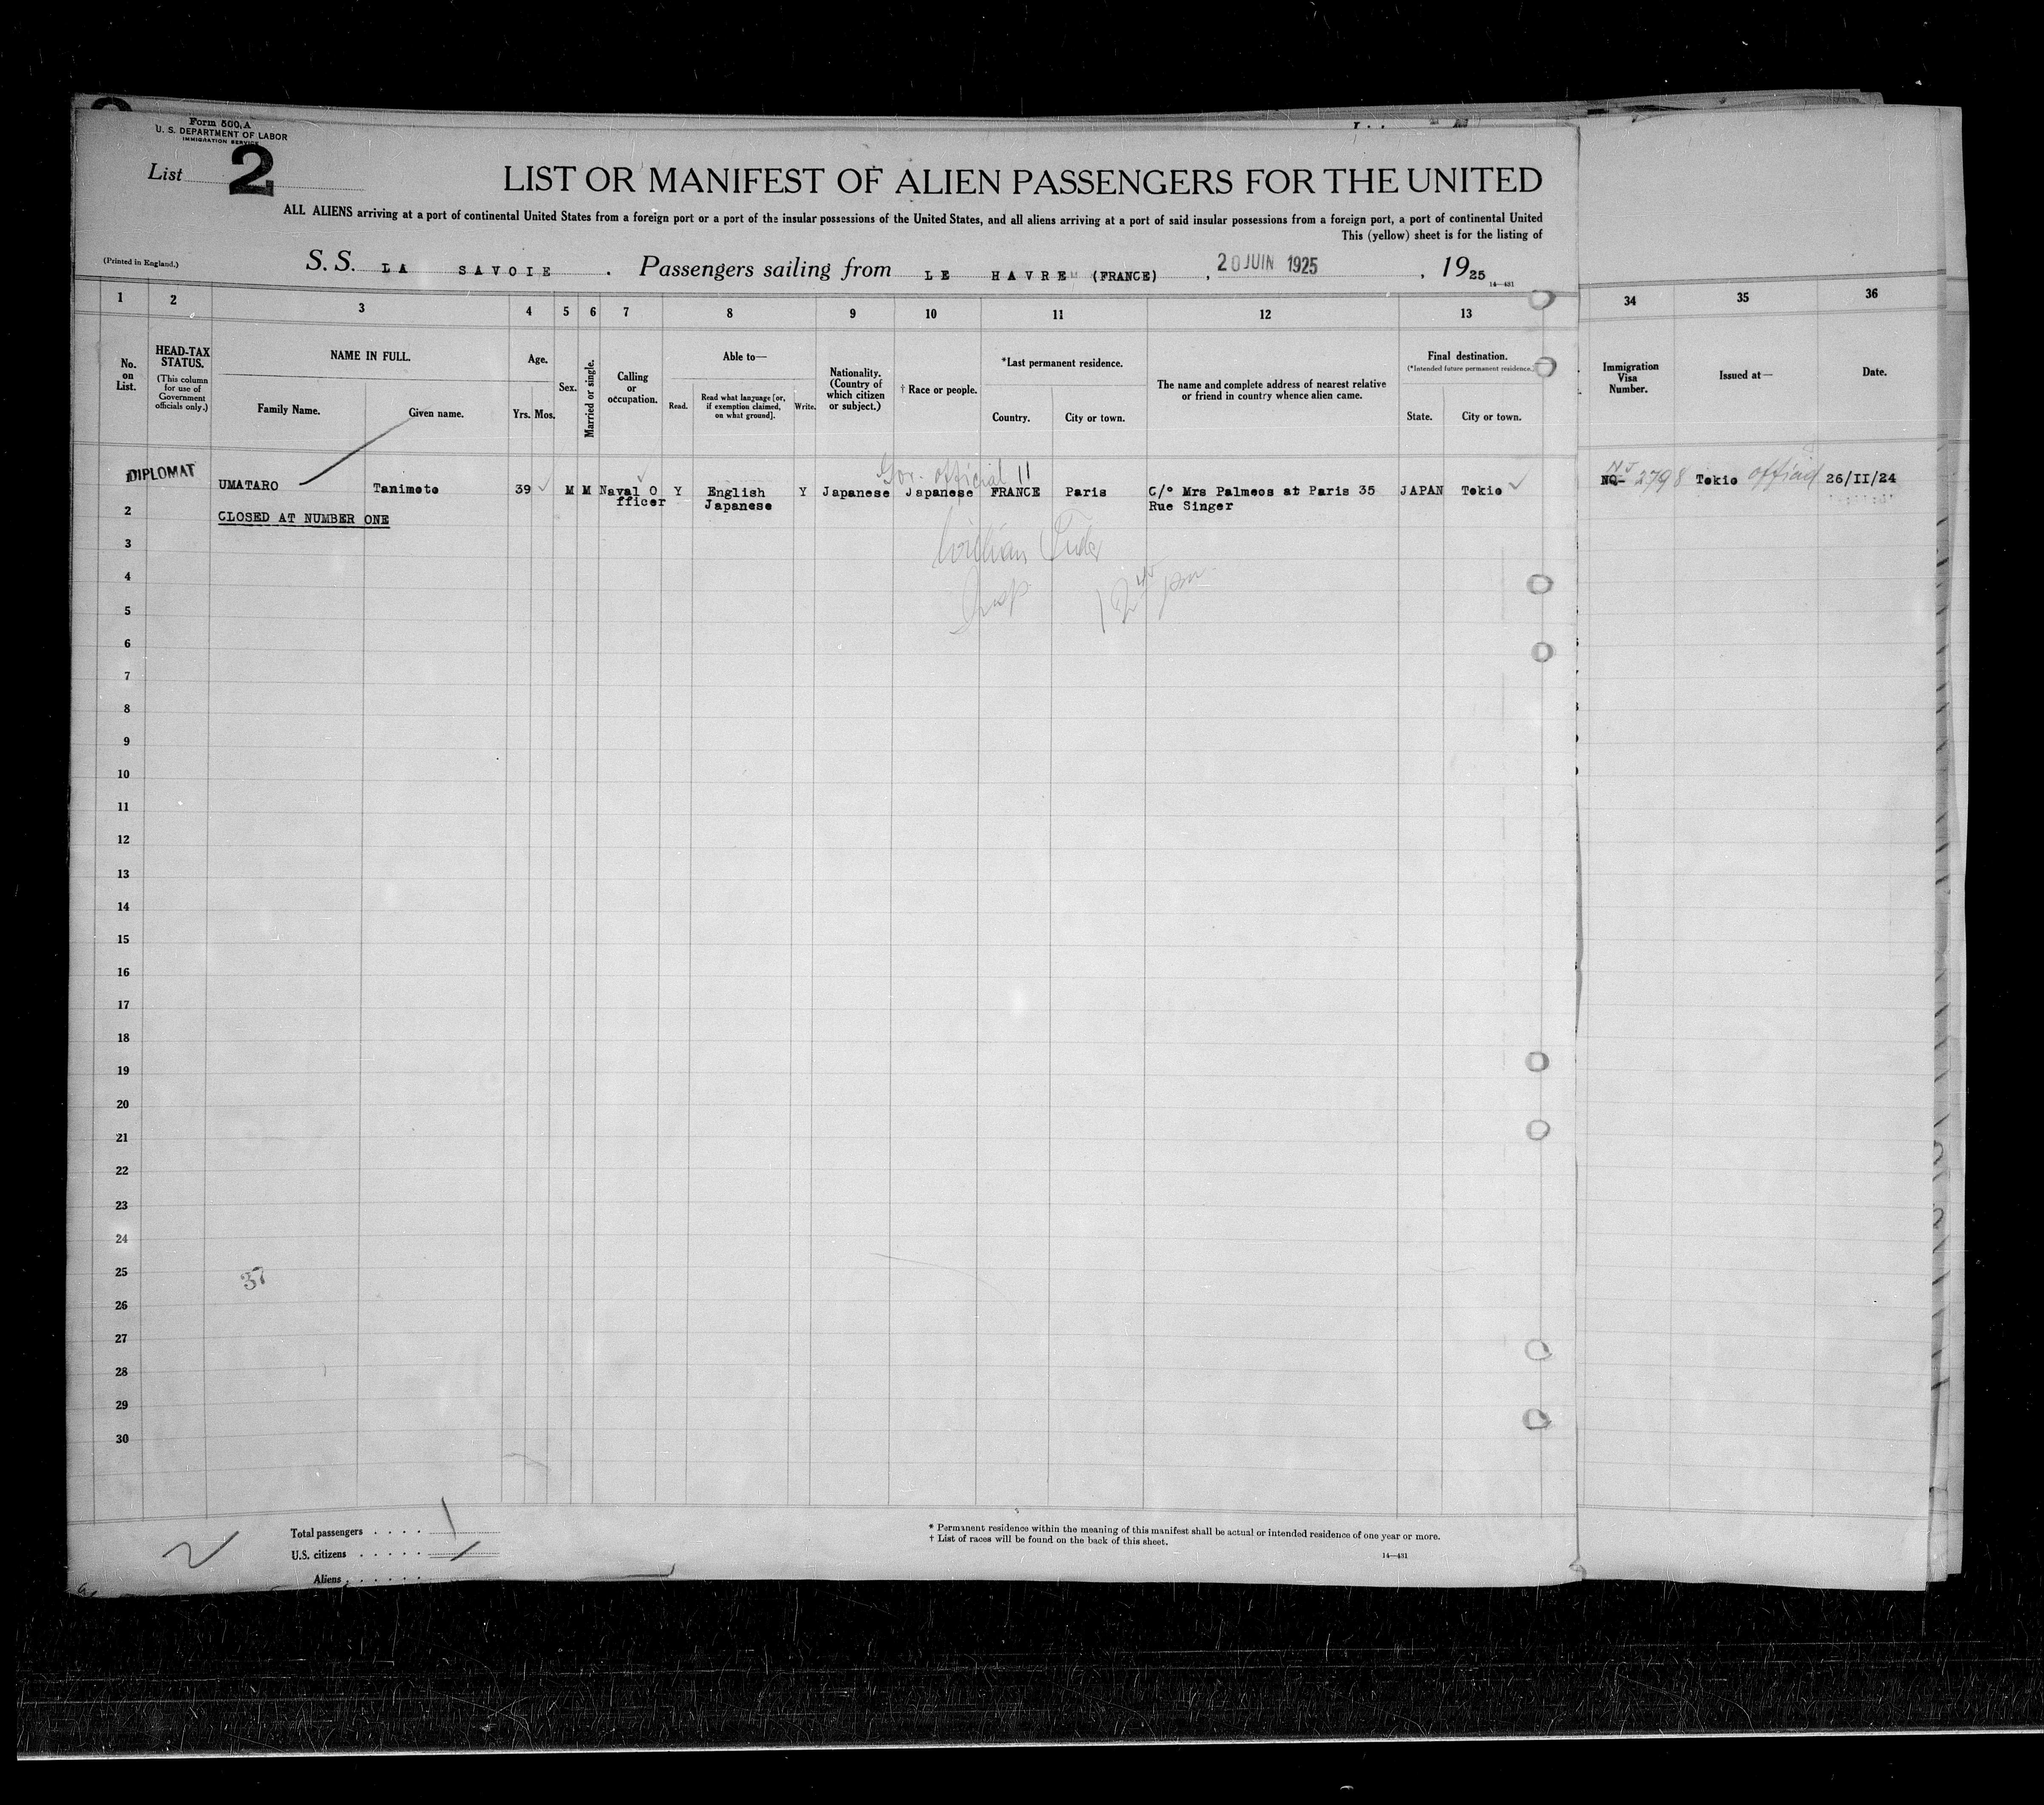 Form 500, A
U. S. DEPARTMENT OF LABOR
IMMIGRATION SERVICE
List 2
LIST OR MANIFEST OF ALIEN PASSENGERS FOR THE UNITED
ALL ALIENS arriving at a port of continental United States from a foreign port or a port of the insular possessions of the United States, and all aliens arriving at a port of said insular possessions from a foreign port, a port of continental United
This (yellow) sheet is for the listing of
(Printed in England.)
S. S. LA SAVOIE . Passengers sailing from LE HAVRE (FRANCE) , 20 JUIN 1925 , 1925
14—431
1 2 3 4 5 6 7 8 9 10 11 12 13 34 35 36
No. on List.
HEAD-TAX STATUS.
(This column for use of Government officials only.)
NAME IN FULL.
Family Name. Given name.
Age.
Yrs. Mos.
Sex.
Married or single.
Calling or occupation.
Able to—
Read. Read what language [or, if exemption claimed, on what ground]. Write.
Nationality. (Country of which citizen or subject.)
† Race or people.
*Last permanent residence.
Country. City or town.
The name and complete address of nearest relative or friend in country whence alien came.
Final destination.
(*Intended future permanent residence.)
State. City or town.
Immigration Visa Number.
Issued at—
Date.
Gov. official 11
DIPLOMAT UMATARO Tanimoto 39 M M Naval O Y English Y Japanese Japanese FRANCE Paris C/o Mrs Palmeos at Paris 35 JAPAN Tokio NO- 2798 Tokio official 26/II/24
fficer Japanese Rue Singer
2 CLOSED AT NUMBER ONE
3
4
5
6
7
8
9
10
11
12
13
14
15
16
17
18
19
20
21
22
23
24
25
37
26
27
28
29
30
Total passengers . . . . 1
U.S. citizens . . . . .
Aliens . . . . . .
* Permanent residence within the meaning of this manifest shall be actual or intended residence of one year or more.
† List of races will be found on the back of this sheet.
14—431